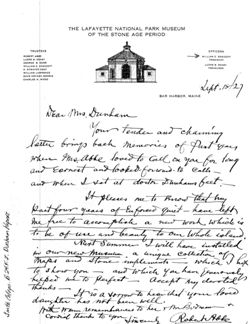 THE LAFAYETTE NATIONAL PARK MUSEUM
OF THE STONE AGE PERIOD
TRUSTEES
OFFICERS
BAR HARBOR, MAINE
Sept. 12/27
Dear Mrs Dunham
Your Tender and charming
letter brings back Memories of Past years
when Mrs Abbe loved to Call on you for long
and Earnest and looked forward to Calls
and when I sat at doctor Dunhams feet.
It pleases me to Know that my
past four years of Enforced Quiet have left
me free to accomplish a new work which is
to be of use and beauty to our Whole island.
Next Summer I will have installed
in our new Museum a unique collection of
Maps and Stone implements which I hope
to show you and which You have generously
helped me to Perfect. accept my devoted
thanks.
It is a sorrow to hear that your loved
daughter is not been well.
With warm remembrances to her
and cordial thanks to you
Sincerely Robert Abbe